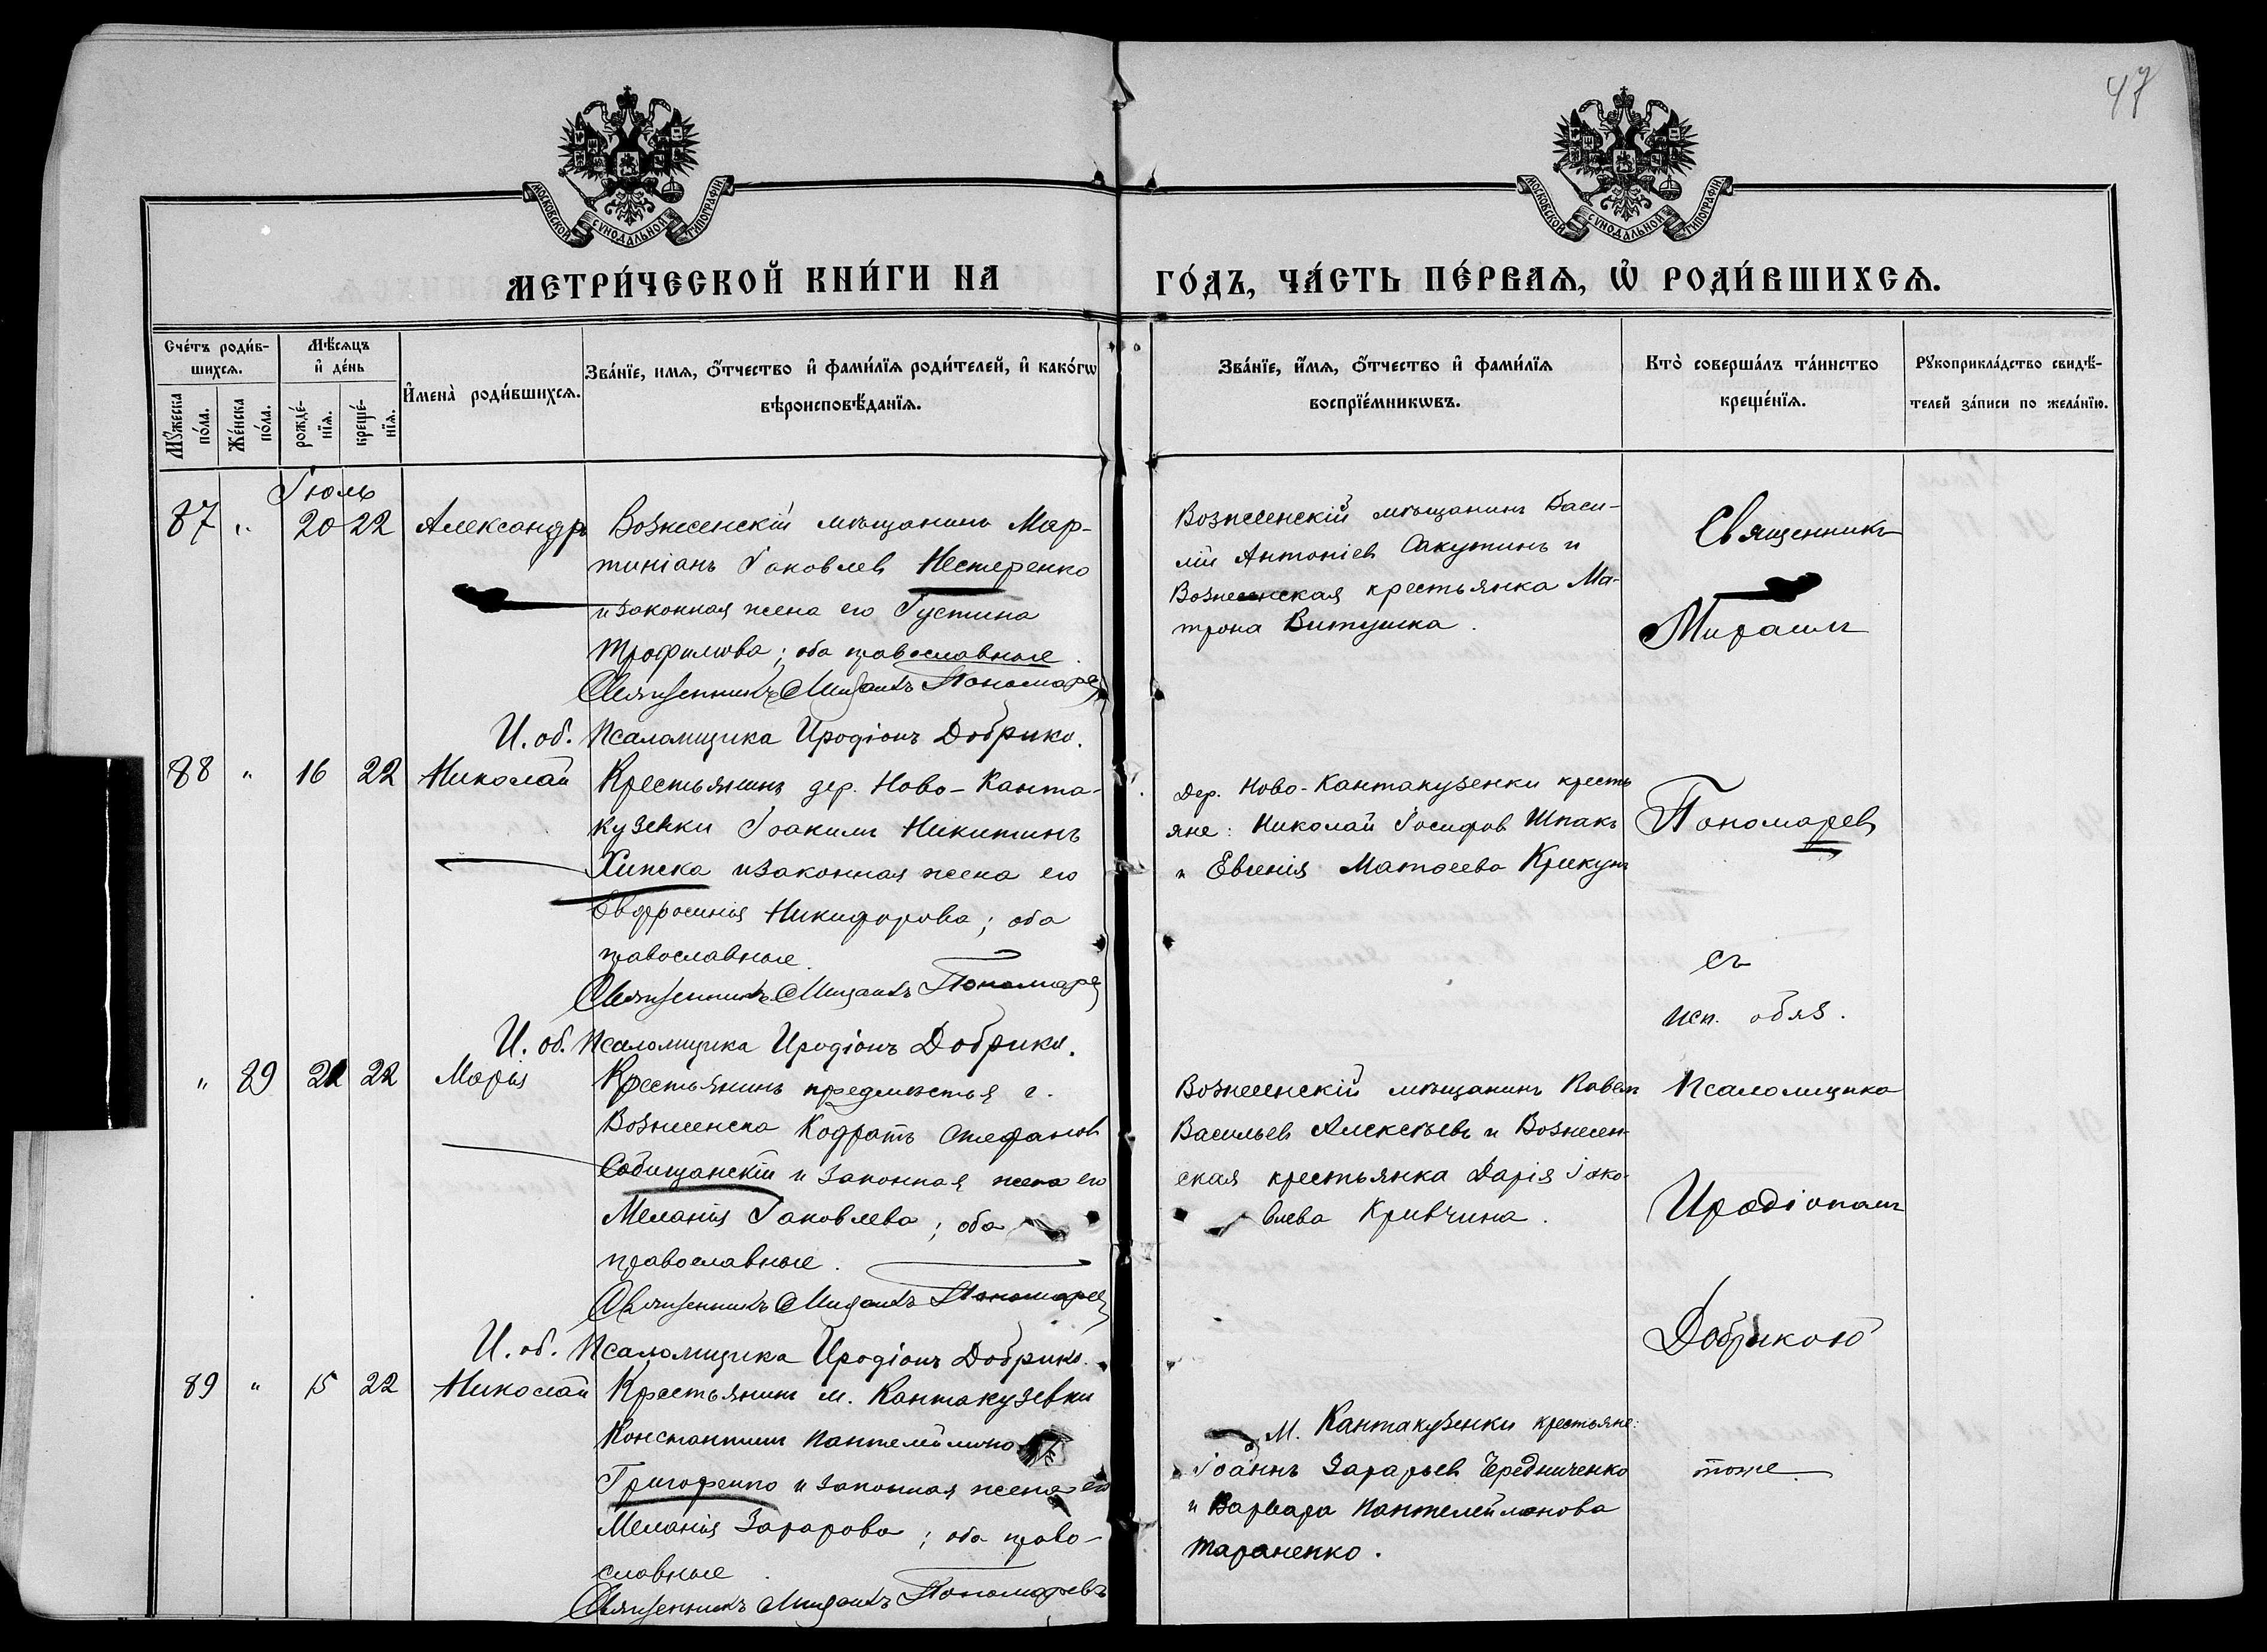 47
МОСКОВСКОЙ СУНОДАЛЬНОЙ ТИПОГРАФІИ
МОСКОВСКОЙ СУНОДАЛЬНОЙ ТИПОГРАФІИ
МЕТРИ́ЧЕСКОЙ КНИ́ГИ НА ГО́ДЪ, ЧА́СТЬ ПЕ́РВАѦ, Ѡ҆ РОДИ́ВШИХСѦ.
Сче́тъ роди́в-
шихсѧ.
Мѣ́сяцъ
и҆ де́нь
Мꙋ́жеска по́ла.
Же́нска по́ла.
рожде́-
нїѧ.
креще́-
нїѧ.
И҆мена̀ роди́вшихсѧ.
Зва́нїе, имѧ, ѻ҆́тчество и҆ фами́лїѧ роди́телей, и҆ како́гѡ
вѣроисповѣ́данїѧ.
Зва́нїе, и҆́мѧ, ѻ҆́тчество и҆ фами́лїѧ
воспрїе́мникѡвъ.
Кто̀ соверша́лъ та́инство
креще́нїѧ.
Рꙋкоприкла́дство свидѣ́-
телей за́писи по жела́нїю.
Іюль
87 " 20 22 Александръ
Вознесенскій мѣщанинъ Мар-
тиніанъ Іаковлев Нестеренко
и законная жена его Іустина
Трофимова; оба православные.
Священникъ Михаилъ Пономарев
И. об. Псаломщика Иродіонъ Добрико.
Вознесенскій мѣщанинъ Васи-
лій Антоніев Сакутинъ и
Вознесенская крестьянка Ма-
трона Витушка.
Священникъ
Михаилъ
88 " 16 22 Николай
Крестьянинъ дер. Ново-Канта-
кузенки Іоакимъ Никитинъ
Хипска и законная жена его
Евфросинія Никифорова; оба
православные.
Священникъ Михаилъ Пономарев
И. об. Псаломщика Иродіонъ Добрико.
Дер. Ново-Кантакузенки кресть
яне: Николай Іосифов Шпакъ
и Евгенія Матѳеева Крикунъ
Пономарев
съ
исп. обяз.
" 89 22 Марія
Крестьянинъ предмѣстья г.
Вознесенска Кодратъ Стефанов
Собищанскій и законная жена его
Меланія Іаковлева; оба
православные.
Священникъ Михаилъ Пономарев
И. об. Псаломщика Иродіонъ Добрико.
Вознесенскій мѣщанинъ Павел
Васильев Алексѣевъ и Вознесен-
ская крестьянка Дарія Іако-
влева Кривчина.
Псаломщика
Иродіономъ
Добрикою
89 " 15 22 Николай
Крестьянинъ м. Кантакузенки
Константинъ Пантелеймоно
Григоренко и законная жена его
Меланія Захарова; оба право-
славные.
Священникъ Михаилъ Пономаревъ
М. Кантакузенки крестьяне:
Іоаннъ Захарьев Чередниченко
и Варвара Пантелеймонова
Тараненко.
тоже.